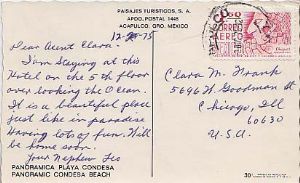 PAISAJES TURISTICOS, S. A.
APDO. POSTAL 1448
ACAPULCO, GRO. MEXICO
Dear Aunt Clara:
I am staying at this
Hotel on the 5th floor
over looking the Ocean.
It is a beautiful place
just like in paradise
Having lots of fun. Will
be home soon.
Your Nephew Leo
PANORAMICA PLAYA CONDESA
PANORAMIC CONDESA BEACH
CORREO
AEREO
Clara M. Frank
5696 W. Goodman St
Chicago, Ill
60630
U.S.A.